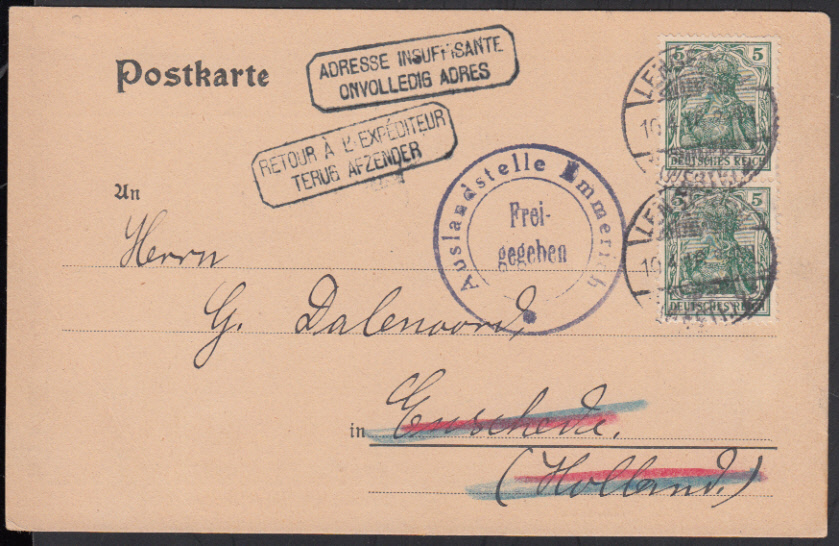 Postkarte
ADRESSE INSUFFISANTE
ONVOLLEDIG ADRES
RETOUR À L'EXPÉDITEUR
TERUG AFZENDER
5
DEUTSCHES REICH
5
DEUTSCHES REICH
Auslandstelle Emmerich
Frei-
gegeben
An
Herrn
G. Dalenoord,
in Enschede.
(Holland.)